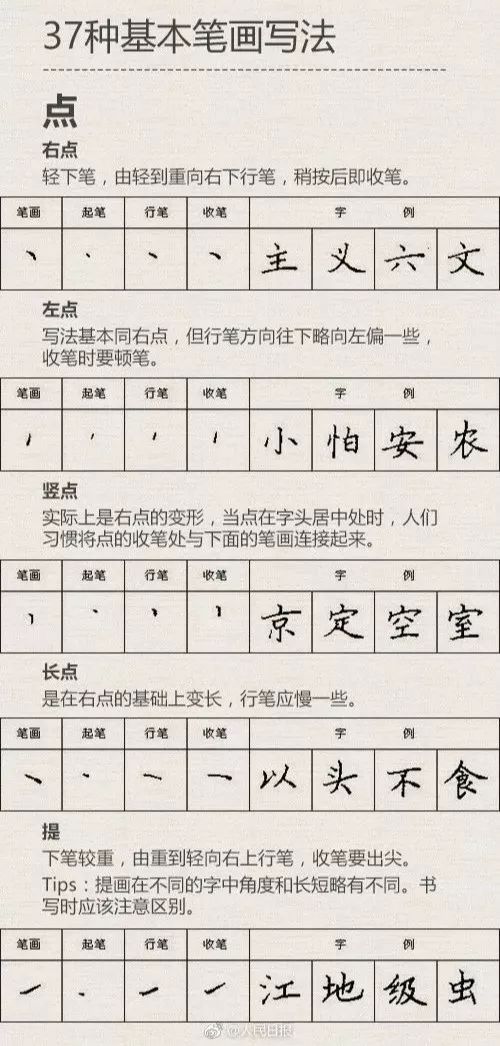 37种基本笔画写法
点
右点
轻下笔，由轻到重向右下行笔，稍按后即收笔。
笔画 起笔 行笔 收笔 字 例
主 义 六 文
左点
写法基本同右点，但行笔方向往下略向左偏一些，
收笔时要顿笔。
笔画 起笔 行笔 收笔 字 例
小 怕 安 农
竖点
实际上是右点的变形，当点在字头居中处时，人们
习惯将点的收笔处与下面的笔画连接起来。
笔画 起笔 行笔 收笔 字 例
京 定 空 室
长点
是在右点的基础上变长，行笔应慢一些。
笔画 起笔 行笔 收笔 字 例
以 头 不 食
提
下笔较重，由重到轻向右上行笔，收笔要出尖。
Tips：提画在不同的字中角度和长短略有不同。书
写时应该注意区别。
笔画 起笔 行笔 收笔 字 例
江 地 级 虫
@人民日报